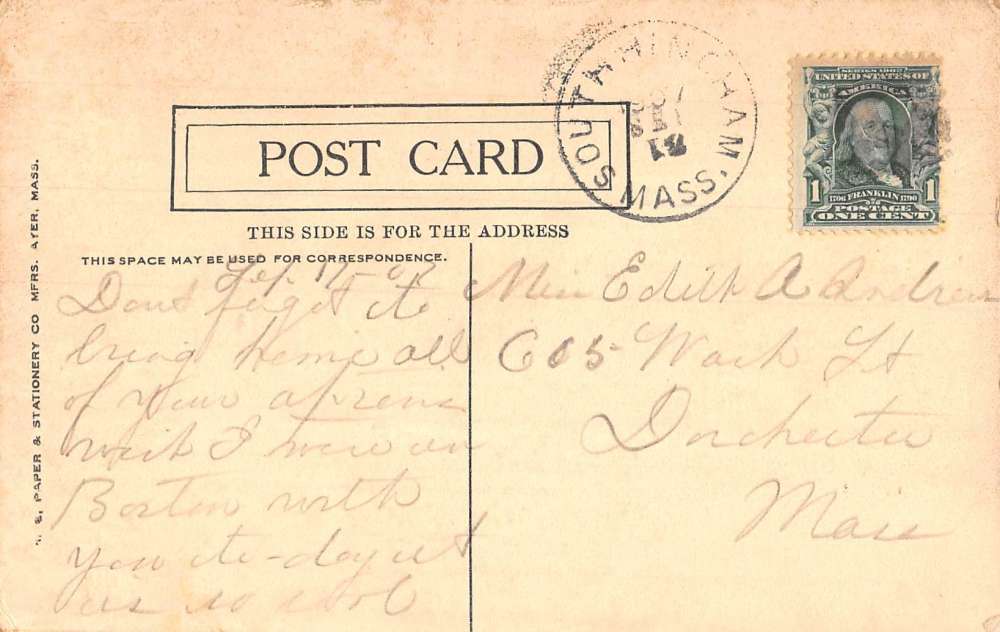 SOUTH HINGHAM, MASS.
SERIES 1902
UNITED STATES OF AMERICA
1 1706 FRANKLIN 1790 1
POSTAGE
ONE CENT
POST CARD
THIS SIDE IS FOR THE ADDRESS
THIS SPACE MAY BE USED FOR CORRESPONDENCE.
PAPER & STATIONERY CO MFRS. AYER, MASS.
Sep. 17-07
Dont forget to
bring home all
of your aprons
wish I were in
Boston with
you to-day it
is so
Miss Edith A Andrews
605 Wash St
Dorchester
Mass